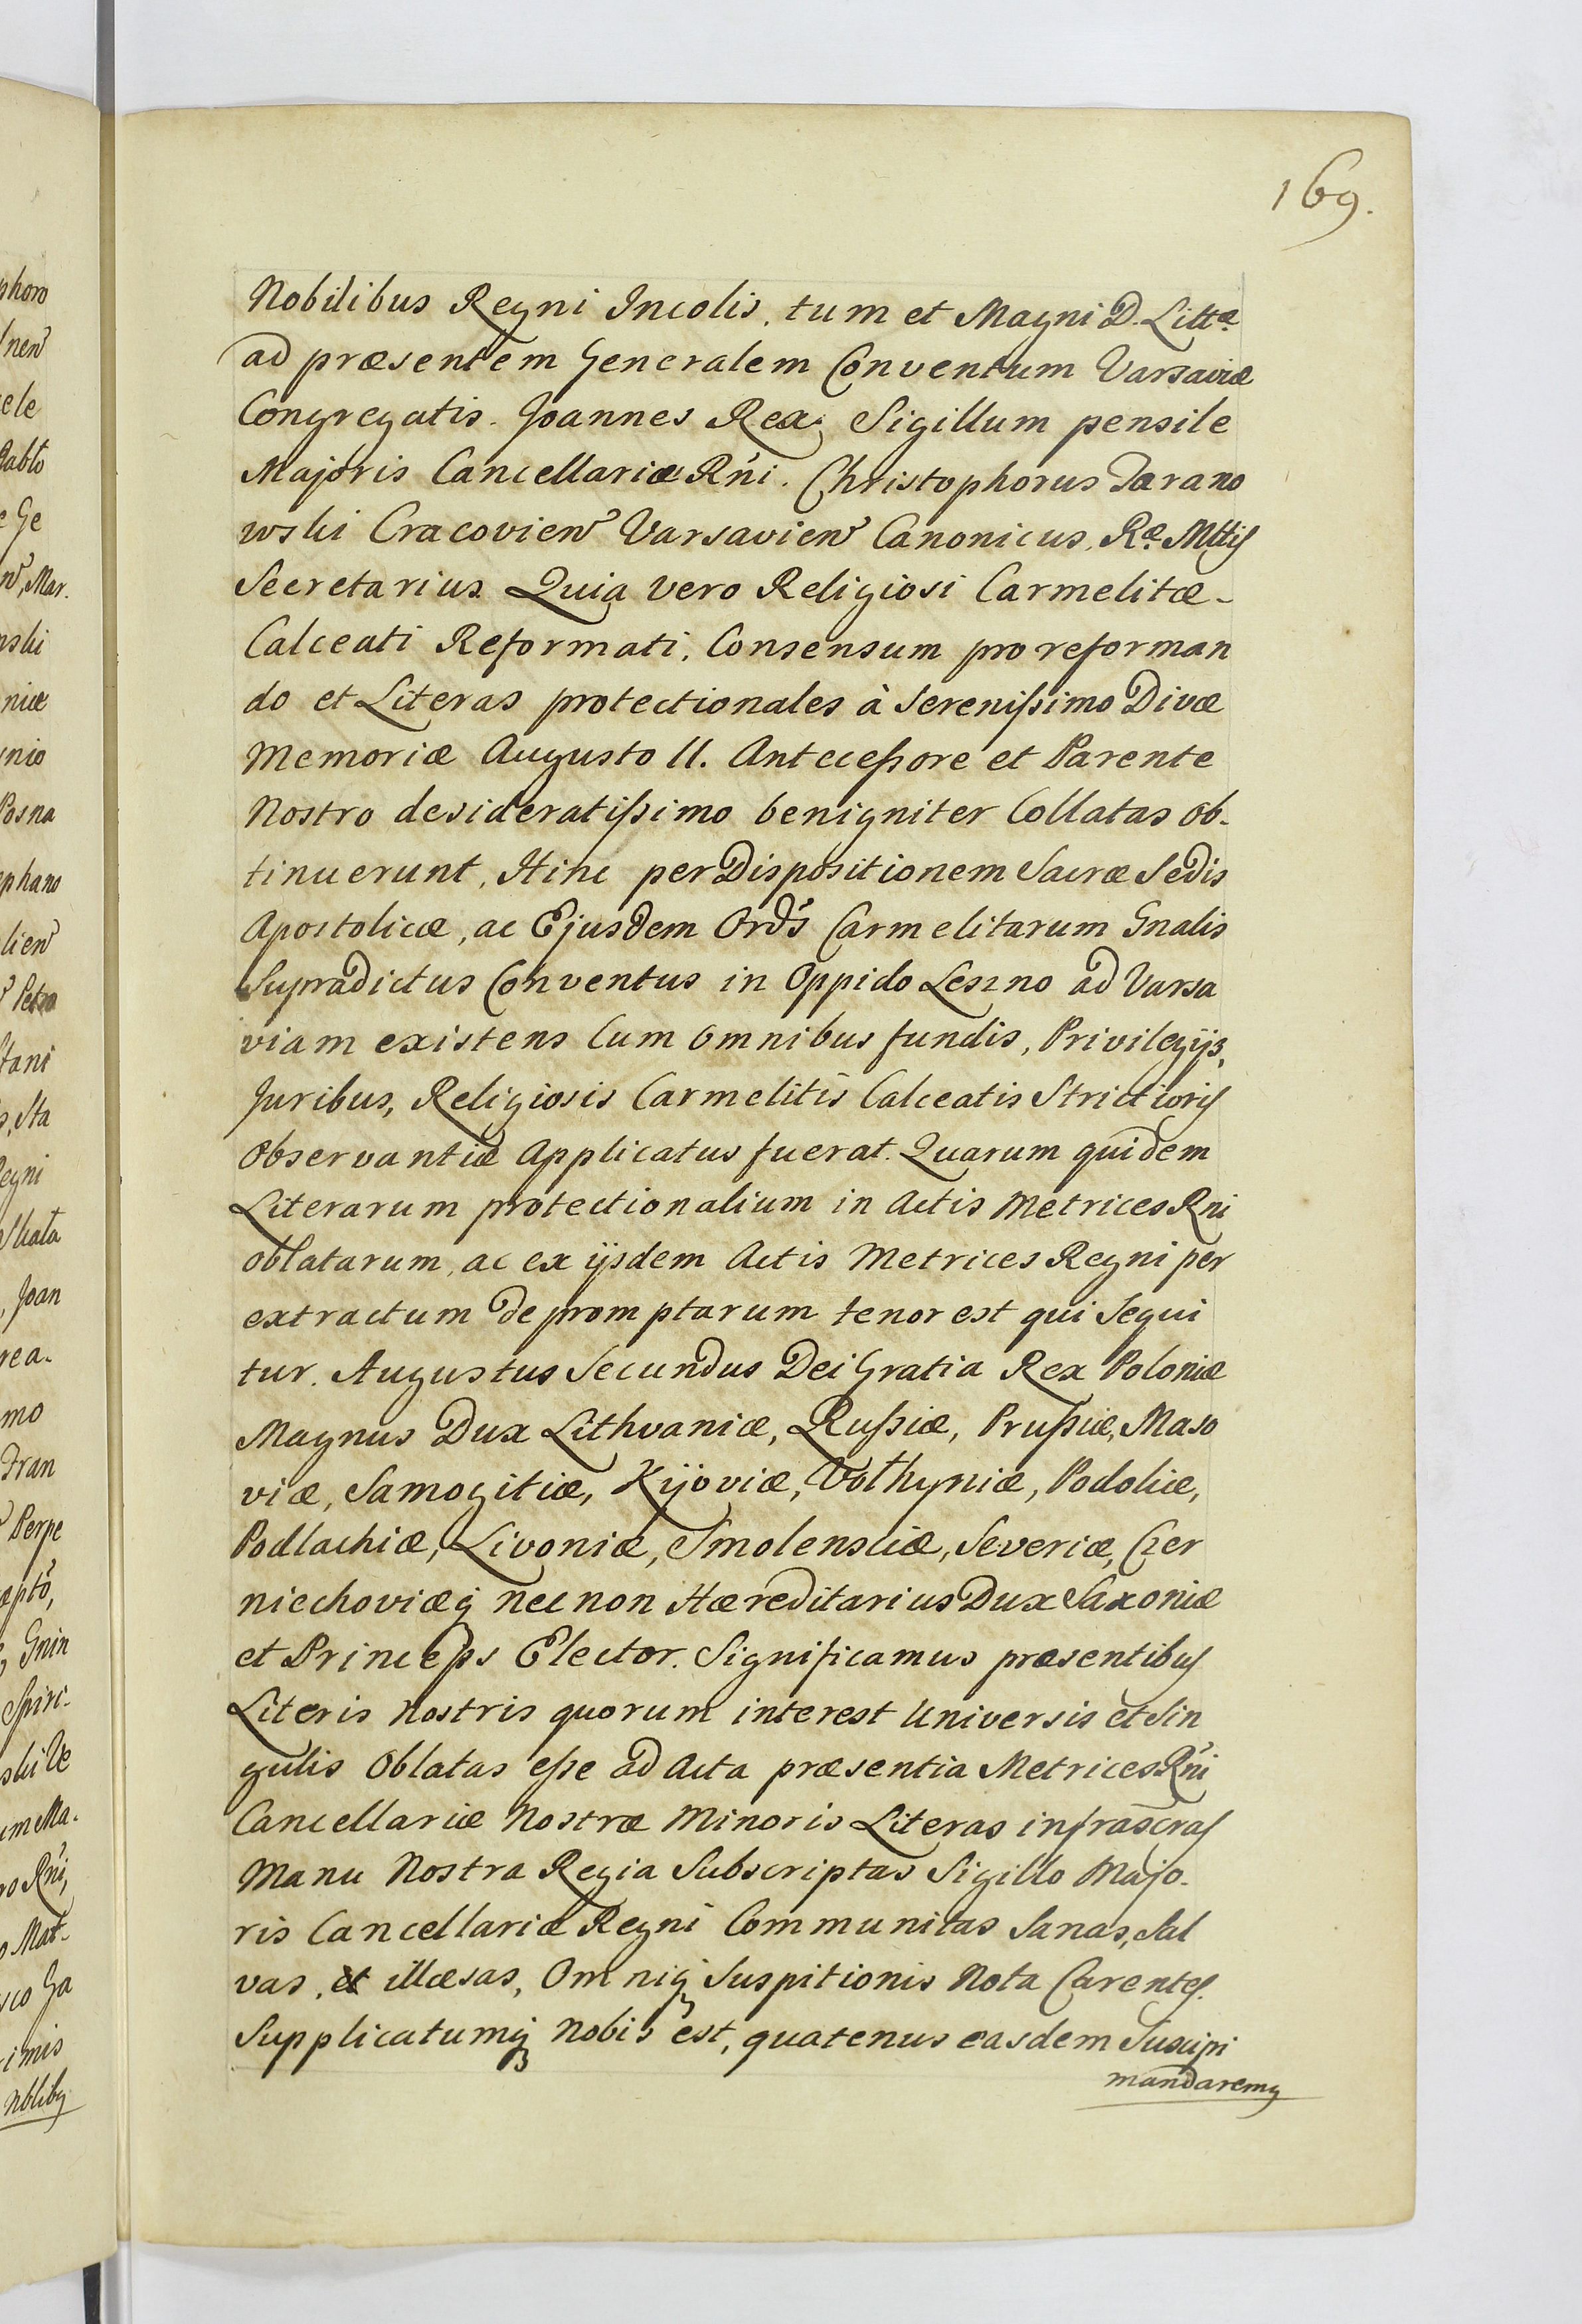 169.
Nobilibus Regni Incolis, tum et Magni D. Littæ
ad præsentem Generalem Conventum Varsaviæ
Congregatis. Joannes Rex. Sigillum pensile
Majoris Cancellariæ Rńi. Christophorus Tarano
wski Cracovien Varsavien Canonicus, Ræ Mttis
Secretarius Quia vero Religiosi Carmelitæ-
Calceati Reformati, Consensum pro reforman
do et Literas protectionales à Serenissimo Divæ
Memoriæ Augusto II. Antecessore et Parente
Nostro desideratissimo benigniter Collatas ob-
tinuerunt, Hinc per Dispositionem Sacræ Sedis
Apostolicæ, ac Ejusdem Ordś Carmelitarum Gnalis
Supradictus Conventus in Oppido Leszno ad Varsa
viam existens Cum Omnibus fundis, Privilegijs,
Juribus, Religiosis Carmelitis Calceatis Strictioris
Observantiæ Applicatus fuerat. Quarum quidem
Literarum protectionalium in Actis Metrices Rni
oblatarum, ac ex ijsdem Actis Metrices Regni per
extractum depromptarum tenor est qui Sequi
tur. Augustus Secundus Dei Gratia Rex Poloniæ
Magnus Dux Lithvaniæ, Russiæ, Prussiæ, Maso
viæ, Samogitiæ, Kijoviæ, Volhyniæ, Podoliæ,
Podlachiæ, Livoniæ, Smolensciæ, Severiæ, Czer
niechoviæq nec non Hæreditarius Dux Saxoniæ
et Princeps Elector. Significamus præsentibus
Literis Nostris quorum interest Universis et Sin
gulis Oblatas esse ad Acta præsentia Metrices Rńi
Cancellariæ Nostræ Minoris Literas infrascras
Manu Nostra Regia Subscriptas Sigillo Majo-
ris Cancellariæ Regni Communitas Sanas, Sal
vas, et illæsas, Omniq Suspitionis Nota Carentes.
Supplicatumq Nobis est, quatenus easdem Suscipi
mandaremus